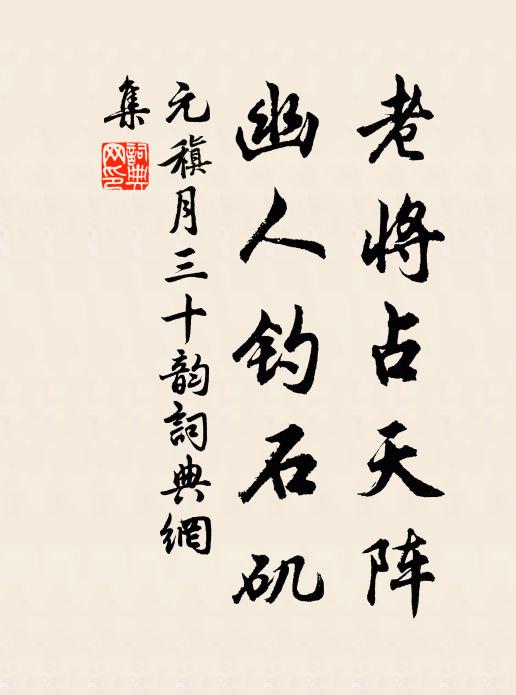 老将占天阵
幽人钓石矶
元稹月三十韵詞典網
集
詞典網印